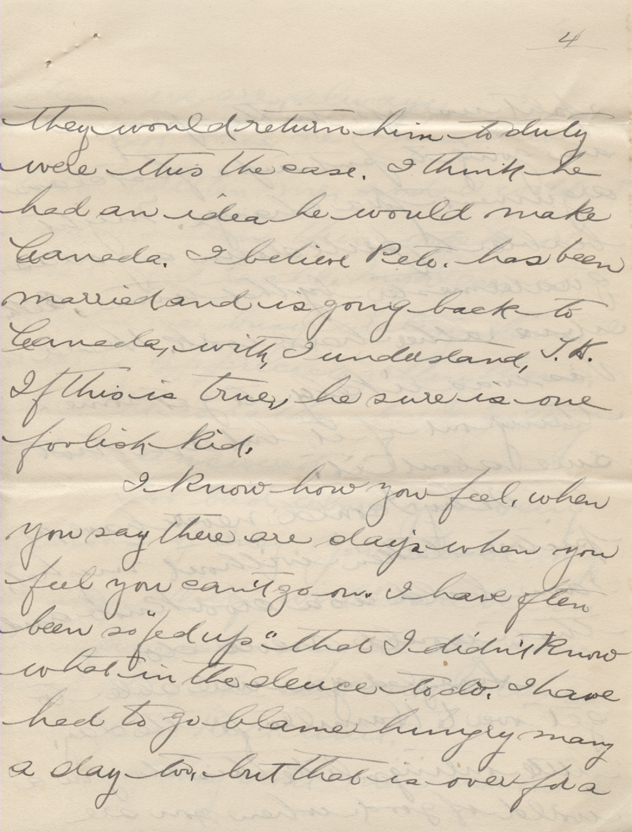 4
they would return him to duty
were this the case. I think he
had an idea he would make
Canada. I believe Pete. has been
married and is going back to
Canada, with, I understand, T.B.
If this is true, he sure is one
foolish kid.
I know how you feel, when
you say there are days when you
feel you can't go on. I have often
been so "fed up" that I didn't know
what in the deuce to do. I have
had to go blame hungry many
a day too, but that is over for a